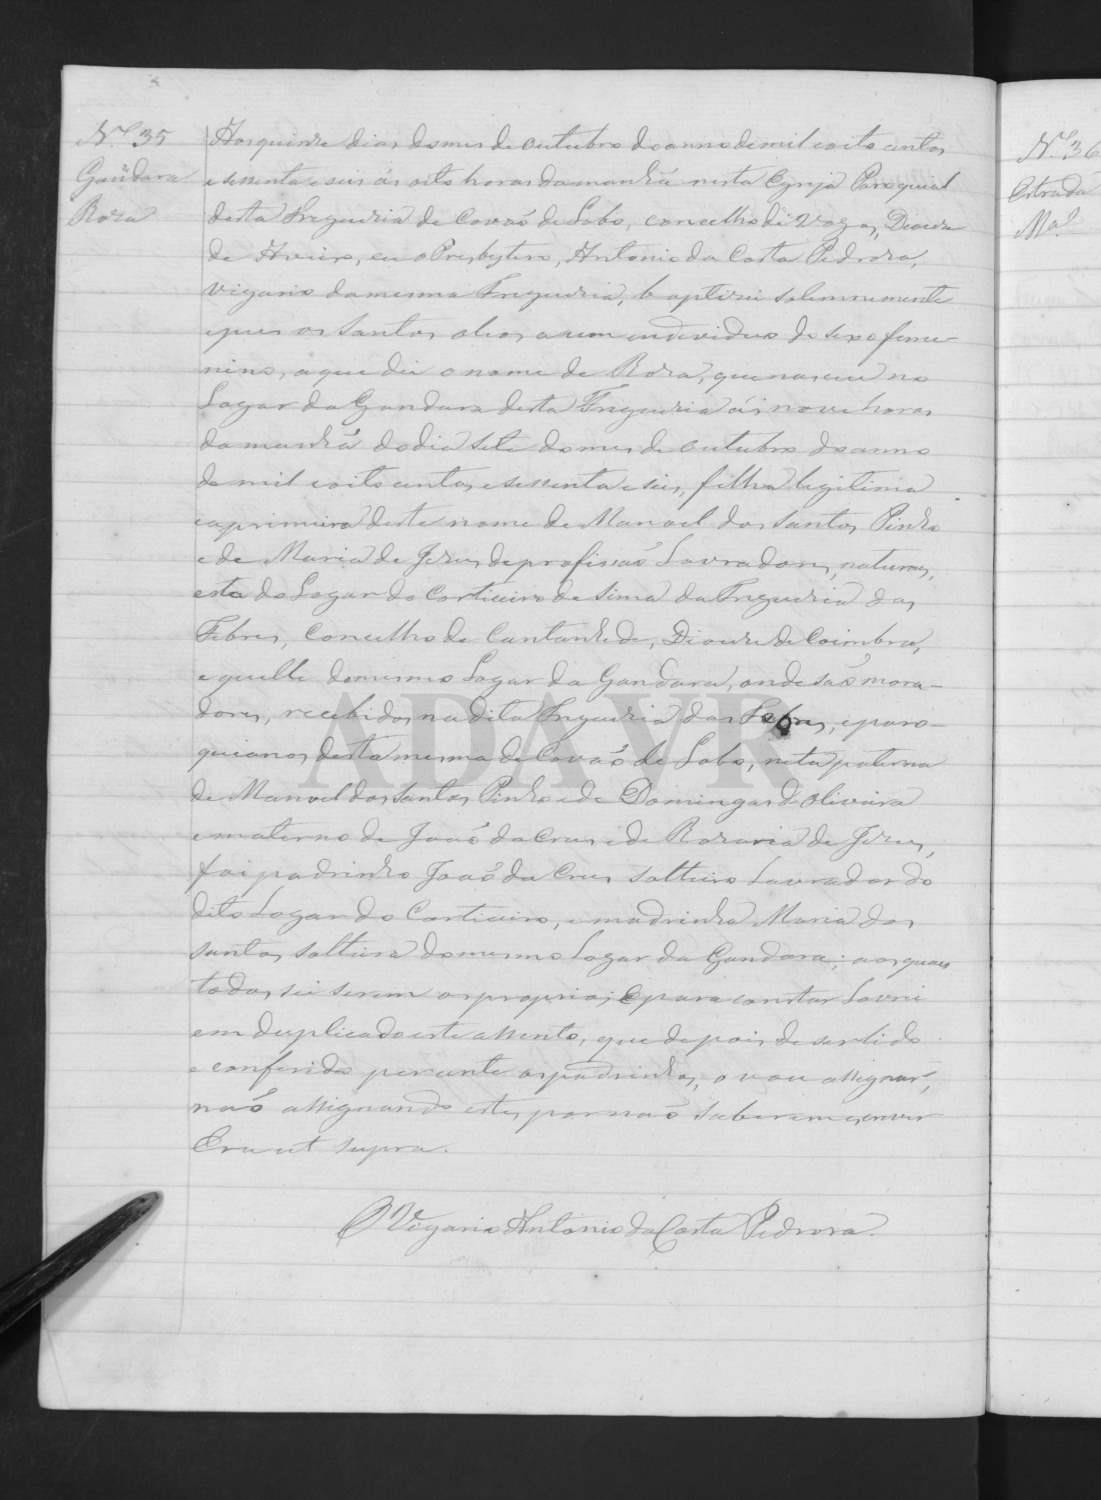 N.º 35
Gandara
Roza
Aos quinze dias do mes de outubro do anno de mil e oito centos
e sessenta e seis ás oito horas da manhã nesta Egreja Paroquial
desta Freguezia de Covaõ de Lobo, concelho de Vagos, Diocese
de Aveiro, eu o Presbytero, Antonio da Costa Pedroza,
Vigario da mesma Freguezia, baptizei solemnemente
e puz os santos oleos a um individuo do sexo feme-
nino, a que dei o nome de Roza, que nasceu no
Logar da Gandara desta Freguezia ás nove horas
da manhã do dia sete do mes de outubro do anno
de mil e oito centos e sessenta e seis, filha legitima
e a primeira deste nome de Manoel dos Santos Pinho
e de Maria de Jezus, de profissaõ Lavradores, naturaes,
esta do Logar do Corticeiro de Sima da Freguezia das
Febres, Concelho de Cantanhede, Diocese de Coimbra,
e quelle do mesmo Logar da Gandara, onde saõ mora-
dores, recebidos na dita Freguezia das Febres, e paro-
quianos desta mesma de Covaõ de Lobo, neta paterna
de Manoel dos Santos Pinho e de Domingas de Oliveira
e materno de Joaõ da Cruz e de Rozaria de Jezus,
foi padrinho Joaõ da Cruz solteiro Lavrador do
dito Logar do Corticeiro, e madrinha Maria dos
Santos solteira do mesmo Logar da Gandara; aos quaes
todos sei serem os proprios; E para constar Lavrei
em duplicado este assento, que depois de ser lido
e conferido perante os padrinhos, o vou assignar,
naõ assignando estes por naõ saberem escrever
Era ut supra.
O Vigario Antonio da Costa Pedroza.
ADAVR
N.º 36
Estrada
Ma.ª